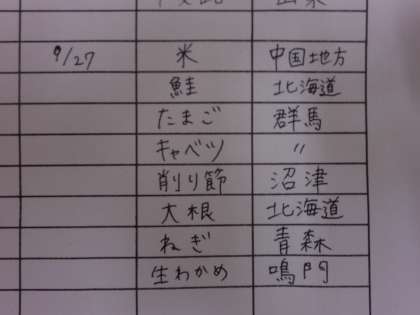 9/27 米 中国地方
鮭 北海道
たまご 群馬
キャベツ 〃
削り節 沼津
大根 北海道
ねぎ 青森
生わかめ 鳴門